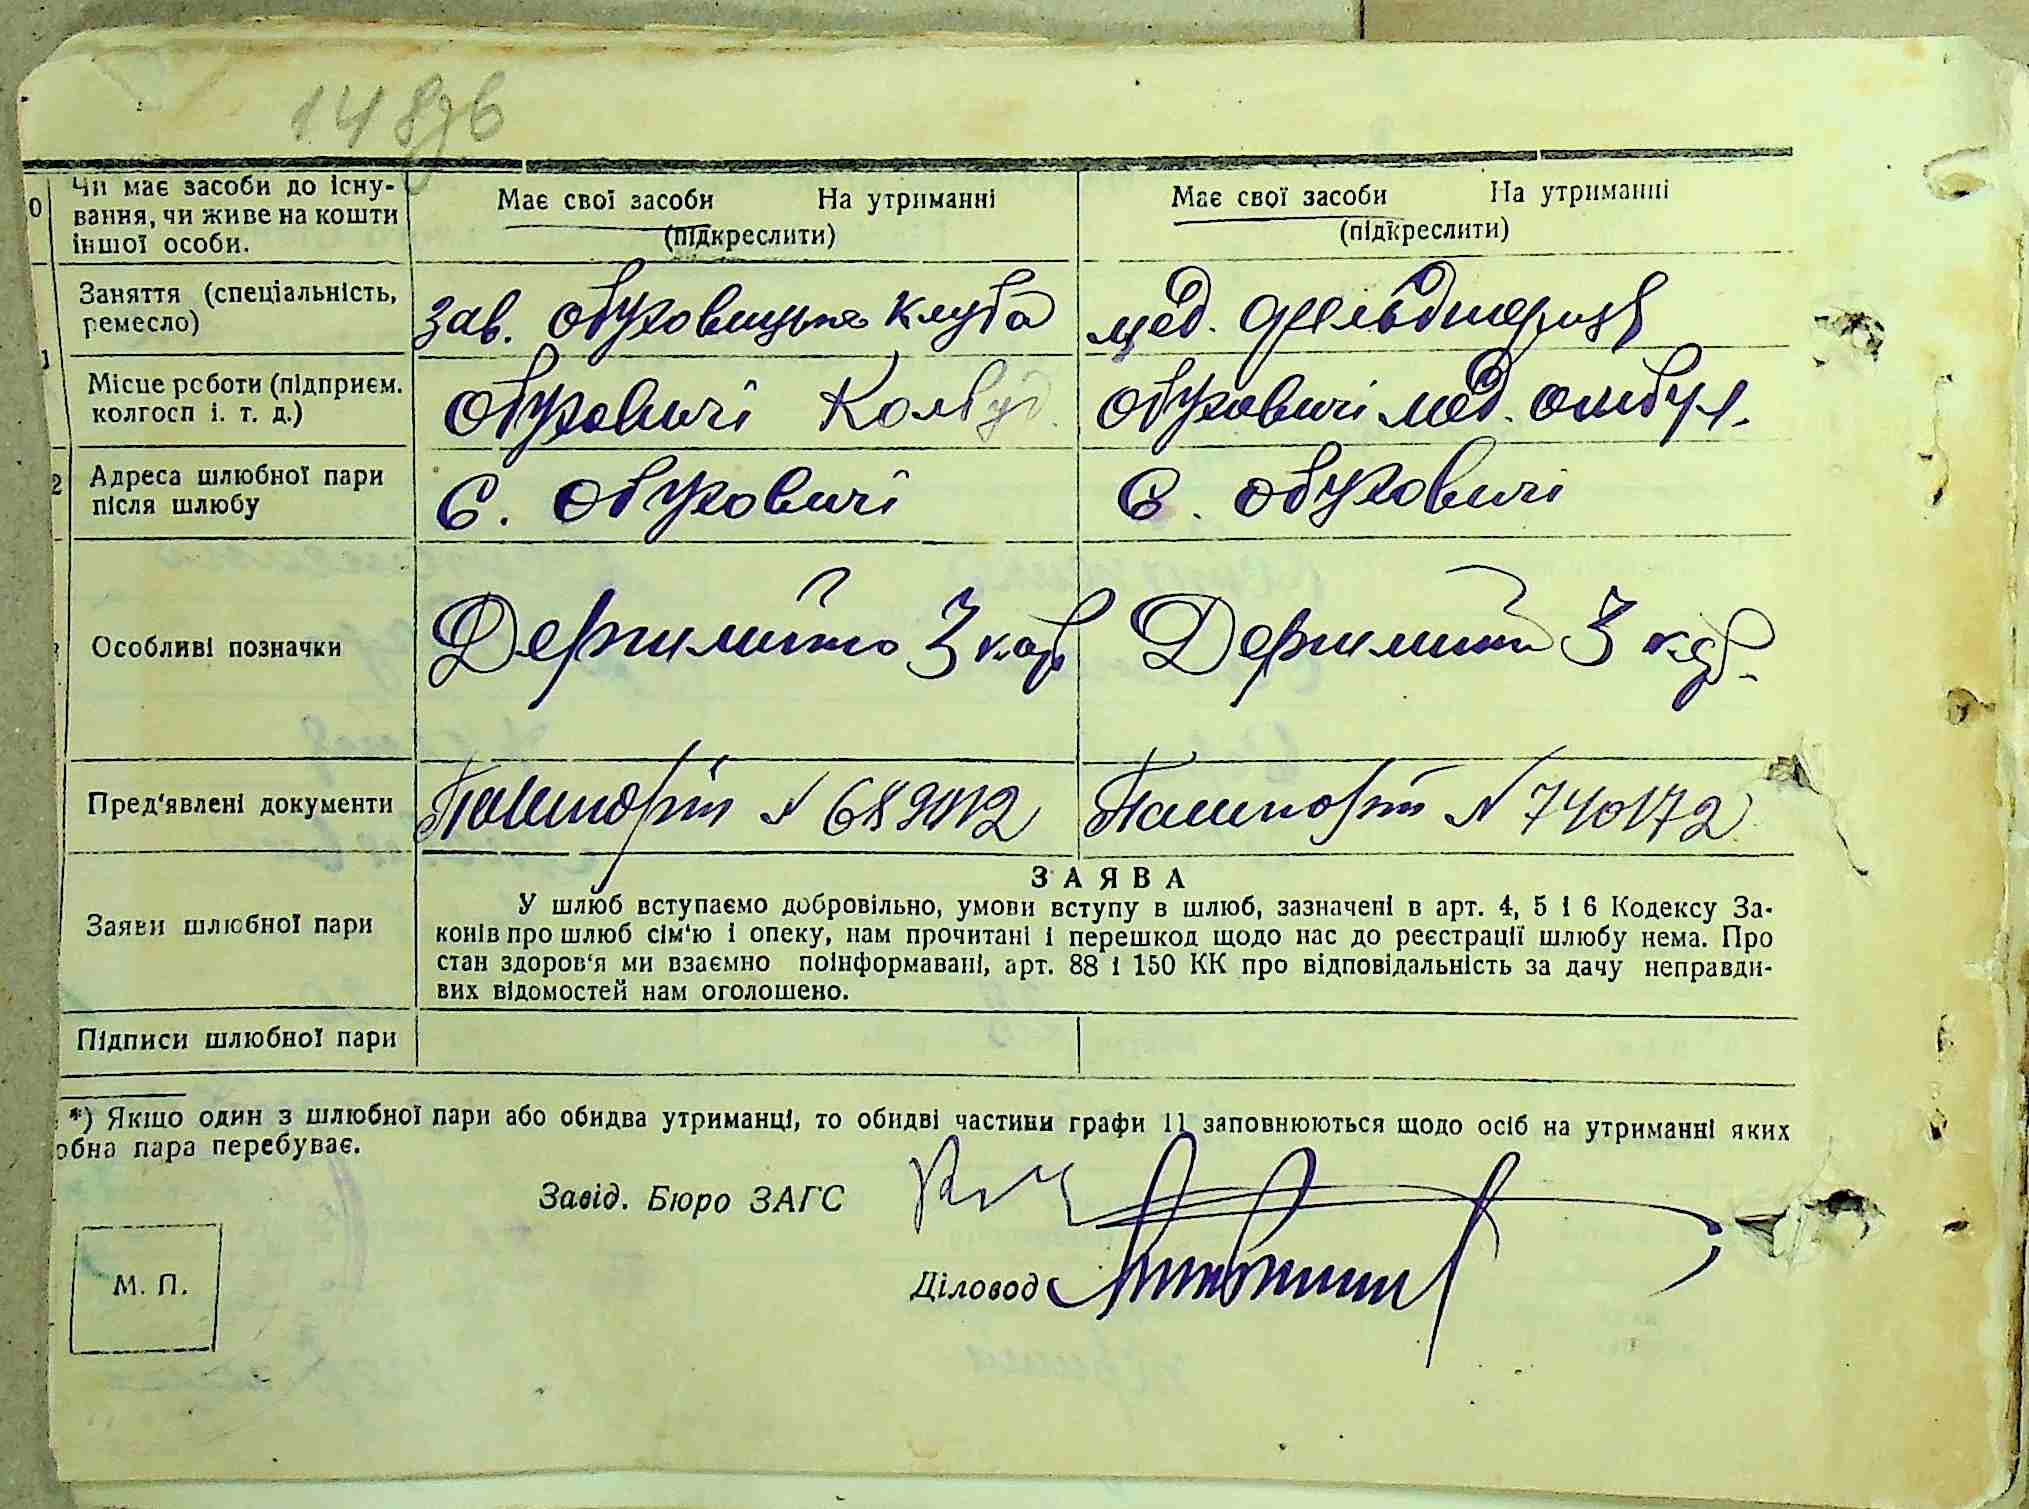 148зв
0 Чи має засоби до існу-
вання, чи живе на кошти
іншої особи.
Має свої засоби На утриманні
(підкреслити)
Має свої засоби На утриманні
(підкреслити)
1 Заняття (спеціальність,
ремесло)
зав. обуховицьке клуба
мед. фельдшериця
Місце роботи (підприєм.
колгосп і. т. д.)
Обуховичі Колбуд.
Обуховичі мед. амбул.
2 Адреса шлюбної пари
після шлюбу
С. Обуховичі
С. Обуховичі
Особливі позначки
Держмито 3 карб
Держмито 3 карб.
Пред'явлені документи
Пашпорт №
Пашпорт № 740172
Заяви шлюбної пари
ЗАЯВА
У шлюб вступаємо добровільно, умови вступу в шлюб, зазначені в арт. 4, 5 і 6 Кодексу За-
конів про шлюб сім'ю і опеку, нам прочитані і перешкод щодо нас до реєстрації шлюбу нема. Про
стан здоров'я ми взаємно поінформавані, арт. 88 і 150 КК про відповідальність за дачу неправди-
вих відомостей нам оголошено.
Підписи шлюбної пари
*) Якщо один з шлюбної пари або обидва утриманці, то обидві частини графи 11 заповнюються щодо осіб на утриманні яких
обна пара перебуває.
Завід. Бюро ЗАГС
М. П.
Діловод